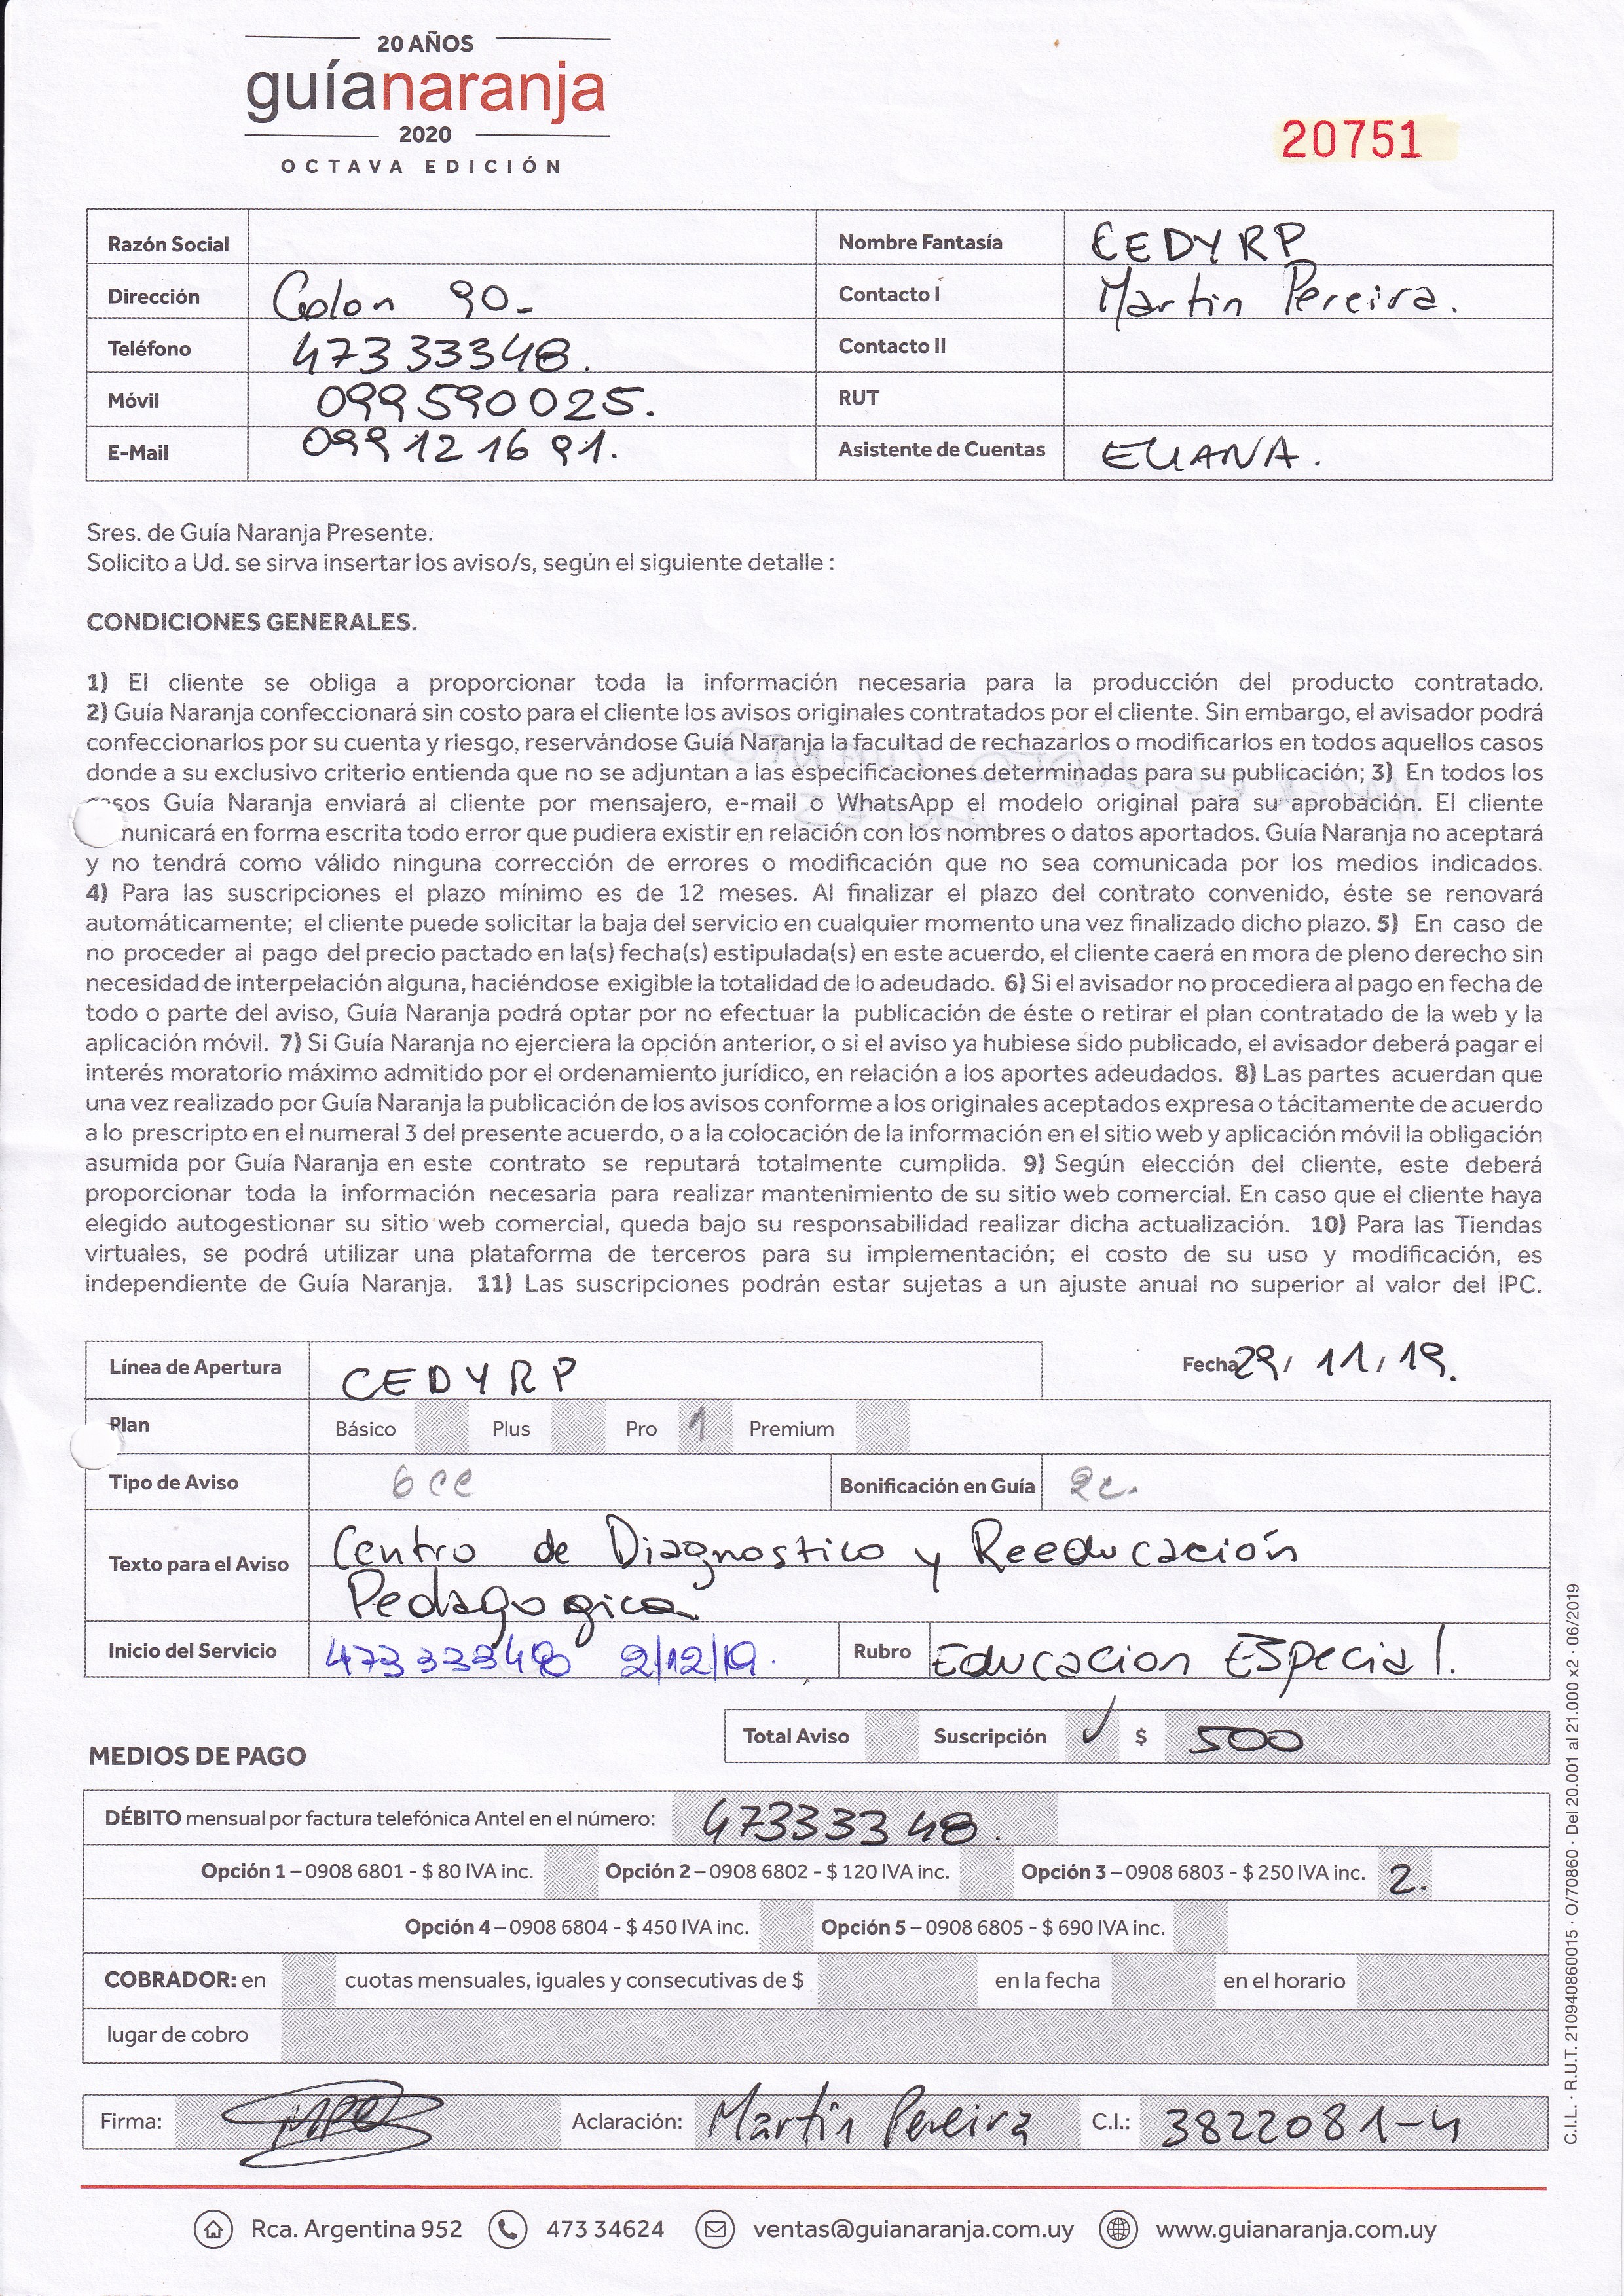 20 AÑOS
guíanaranja
2020
OCTAVA EDICIÓN
20751
Razón Social
Nombre Fantasía CEDYRP
Dirección Colon 90-
Contacto I Martin Pereira.
Teléfono 47333348.
Contacto II
Móvil 099590025.
RUT
E-Mail 099121691.
Asistente de Cuentas ELIANA.
Sres. de Guía Naranja Presente.
Solicito a Ud. se sirva insertar los aviso/s, según el siguiente detalle :
CONDICIONES GENERALES.
1) El cliente se obliga a proporcionar toda la información necesaria para la producción del producto contratado.
2) Guía Naranja confeccionará sin costo para el cliente los avisos originales contratados por el cliente. Sin embargo, el avisador podrá
confeccionarlos por su cuenta y riesgo, reservándose Guía Naranja la facultad de rechazarlos o modificarlos en todos aquellos casos
donde a su exclusivo criterio entienda que no se adjuntan a las especificaciones determinadas para su publicación; 3) En todos los
casos Guía Naranja enviará al cliente por mensajero, e-mail o WhatsApp el modelo original para su aprobación. El cliente
municará en forma escrita todo error que pudiera existir en relación con los nombres o datos aportados. Guía Naranja no aceptará
y no tendrá como válido ninguna corrección de errores o modificación que no sea comunicada por los medios indicados.
4) Para las suscripciones el plazo mínimo es de 12 meses. Al finalizar el plazo del contrato convenido, éste se renovará
automáticamente; el cliente puede solicitar la baja del servicio en cualquier momento una vez finalizado dicho plazo. 5) En caso de
no proceder al pago del precio pactado en la(s) fecha(s) estipulada(s) en este acuerdo, el cliente caerá en mora de pleno derecho sin
necesidad de interpelación alguna, haciéndose exigible la totalidad de lo adeudado. 6) Si el avisador no procediera al pago en fecha de
todo o parte del aviso, Guía Naranja podrá optar por no efectuar la publicación de éste o retirar el plan contratado de la web y la
aplicación móvil. 7) Si Guía Naranja no ejerciera la opción anterior, o si el aviso ya hubiese sido publicado, el avisador deberá pagar el
interés moratorio máximo admitido por el ordenamiento jurídico, en relación a los aportes adeudados. 8) Las partes acuerdan que
una vez realizado por Guía Naranja la publicación de los avisos conforme a los originales aceptados expresa o tácitamente de acuerdo
a lo prescripto en el numeral 3 del presente acuerdo, o a la colocación de la información en el sitio web y aplicación móvil la obligación
asumida por Guía Naranja en este contrato se reputará totalmente cumplida. 9) Según elección del cliente, este deberá
proporcionar toda la información necesaria para realizar mantenimiento de su sitio web comercial. En caso que el cliente haya
elegido autogestionar su sitio web comercial, queda bajo su responsabilidad realizar dicha actualización. 10) Para las Tiendas
virtuales, se podrá utilizar una plataforma de terceros para su implementación; el costo de su uso y modificación, es
independiente de Guía Naranja. 11) Las suscripciones podrán estar sujetas a un ajuste anual no superior al valor del IPC.
Línea de Apertura CEDYRP
Fecha 29/ 11/19.
Plan Básico Plus Pro 1 Premium
Tipo de Aviso 6cc Bonificación en Guía 2c.
Texto para el Aviso
Centro de Diagnostico y Reeducación
Pedagogica
Inicio del Servicio 47333348 2/12/19.
Rubro Educacion Especial.
Total Aviso Suscripción ✓ $ 500
MEDIOS DE PAGO
DÉBITO mensual por factura telefónica Antel en el número: 47333348.
Opción 1 – 0908 6801 - $ 80 IVA inc. Opción 2 – 0908 6802 - $ 120 IVA inc. Opción 3 – 0908 6803 - $ 250 IVA inc. 2.
Opción 4 – 0908 6804 - $ 450 IVA inc. Opción 5 – 0908 6805 - $ 690 IVA inc.
COBRADOR: en cuotas mensuales, iguales y consecutivas de $ en la fecha en el horario
lugar de cobro
Firma: Aclaración: Martin Pereira C.I.: 3822081-4
C.I.L. · R.U.T. 210940860015 · O/70860 · Del 20.001 al 21.000 x2 · 06/2019
Rca. Argentina 952 473 34624 ventas@guianaranja.com.uy www.guianaranja.com.uy